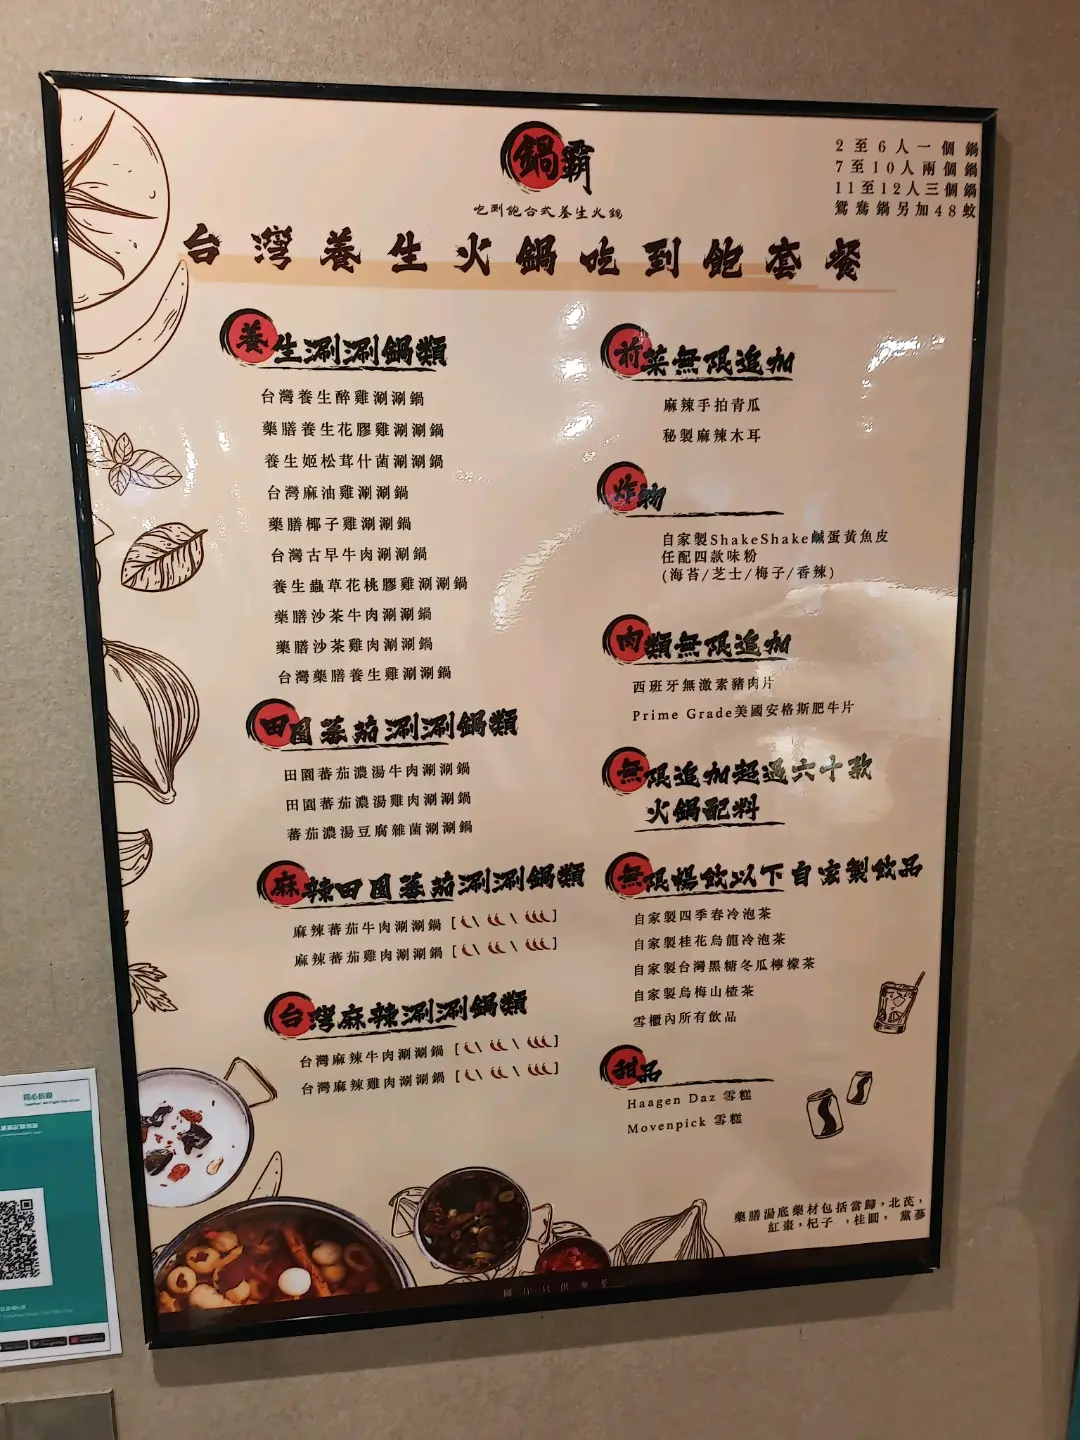 鍋霸
吃到飽台式養生火鍋
2至6人一個鍋
7至10人兩個鍋
11至12人三個鍋
鴛鴦鍋另加48蚊
台灣養生火鍋吃到飽套餐
養生涮涮鍋類
台灣養生醉雞涮涮鍋
藥膳養生花膠雞涮涮鍋
養生姬松茸什菌涮涮鍋
台灣麻油雞涮涮鍋
藥膳椰子雞涮涮鍋
台灣古早牛肉涮涮鍋
養生蟲草花桃膠雞涮涮鍋
藥膳沙茶牛肉涮涮鍋
藥膳沙茶雞肉涮涮鍋
台灣藥膳養生雞涮涮鍋
田園蕃茄涮涮鍋類
田園蕃茄濃湯牛肉涮涮鍋
田園蕃茄濃湯雞肉涮涮鍋
蕃茄濃湯豆腐雜菌涮涮鍋
麻辣田園蕃茄涮涮鍋類
麻辣蕃茄牛肉涮涮鍋
麻辣蕃茄雞肉涮涮鍋
台灣麻辣涮涮鍋類
台灣麻辣牛肉涮涮鍋
台灣麻辣雞肉涮涮鍋
前菜無限追加
麻辣手拍青瓜
秘製麻辣木耳
炸物
自家製ShakeShake鹹蛋黃魚皮
任配四款味粉
(海苔/芝士/梅子/香辣)
肉類無限追加
西班牙無激素豬肉片
Prime Grade美國安格斯肥牛片
無限追加超過六十款
火鍋配料
無限暢飲以下自家製飲品
自家製四季春冷泡茶
自家製桂花烏龍冷泡茶
自家製台灣黑糖冬瓜檸檬茶
自家製烏梅山楂茶
雪櫃內所有飲品
甜品
Haagen Daz 雪糕
Movenpick 雪糕
藥膳湯底藥材包括當歸，北芪，
紅棗，杞子，桂圓，黨蔘
圖片只供參考
同心抗疫